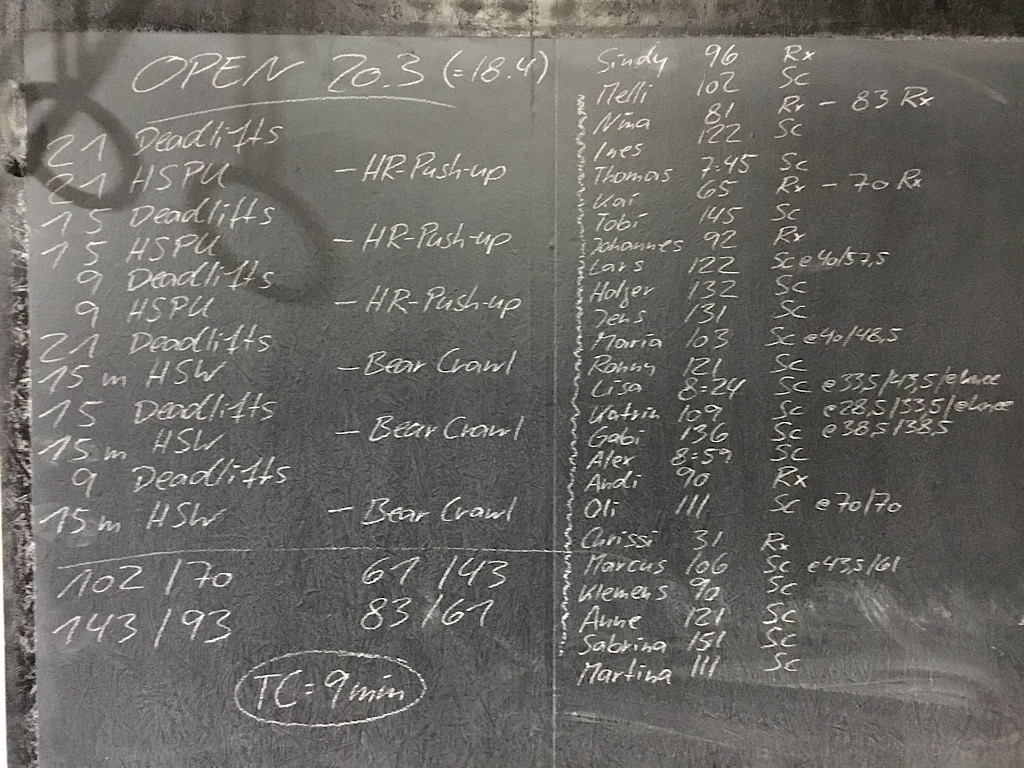 OPEN 20.3 (=18.4)
21 Deadlifts
21 HSPU - HR-Push-up
15 Deadlifts
15 HSPU - HR-Push-up
9 Deadlifts
9 HSPU - HR-Push-up
21 Deadlifts
15 m HSW - Bear Crawl
15 Deadlifts
15 m HSW - Bear Crawl
9 Deadlifts
15 m HSW - Bear Crawl
102/70 61/43
143/93 83/61
TC = 9 min
Sindy 96 Rx
Melli 102 Sc
Nina 81 Rx - 83 Rx
Ines 122 Sc
Thomas 7:45 Sc
Kai 65 Rx - 70 Rx
Tobi 145 Sc
Johannes 92 Rx
Lars 122 Sc e40/57,5
Holger 132 Sc
Jens 131 Sc
Maria 103 Sc e40/48,5
Ronny 121 Sc
Lisa 8:24 Sc e33,5/43,5/eknee
Katrin 109 Sc e28,5/33,5/eknee
Gabi 136 Sc e38,5/38,5
Alex 8:59 Sc
Andi 90 Rx
Oli 111 Sc e70/70
Chrissi 31 Rx
Marcus 106 Sc e43,5/61
Klemens 90 Sc
Anne 121 Sc
Sabrina 151 Sc
Martina 111 Sc